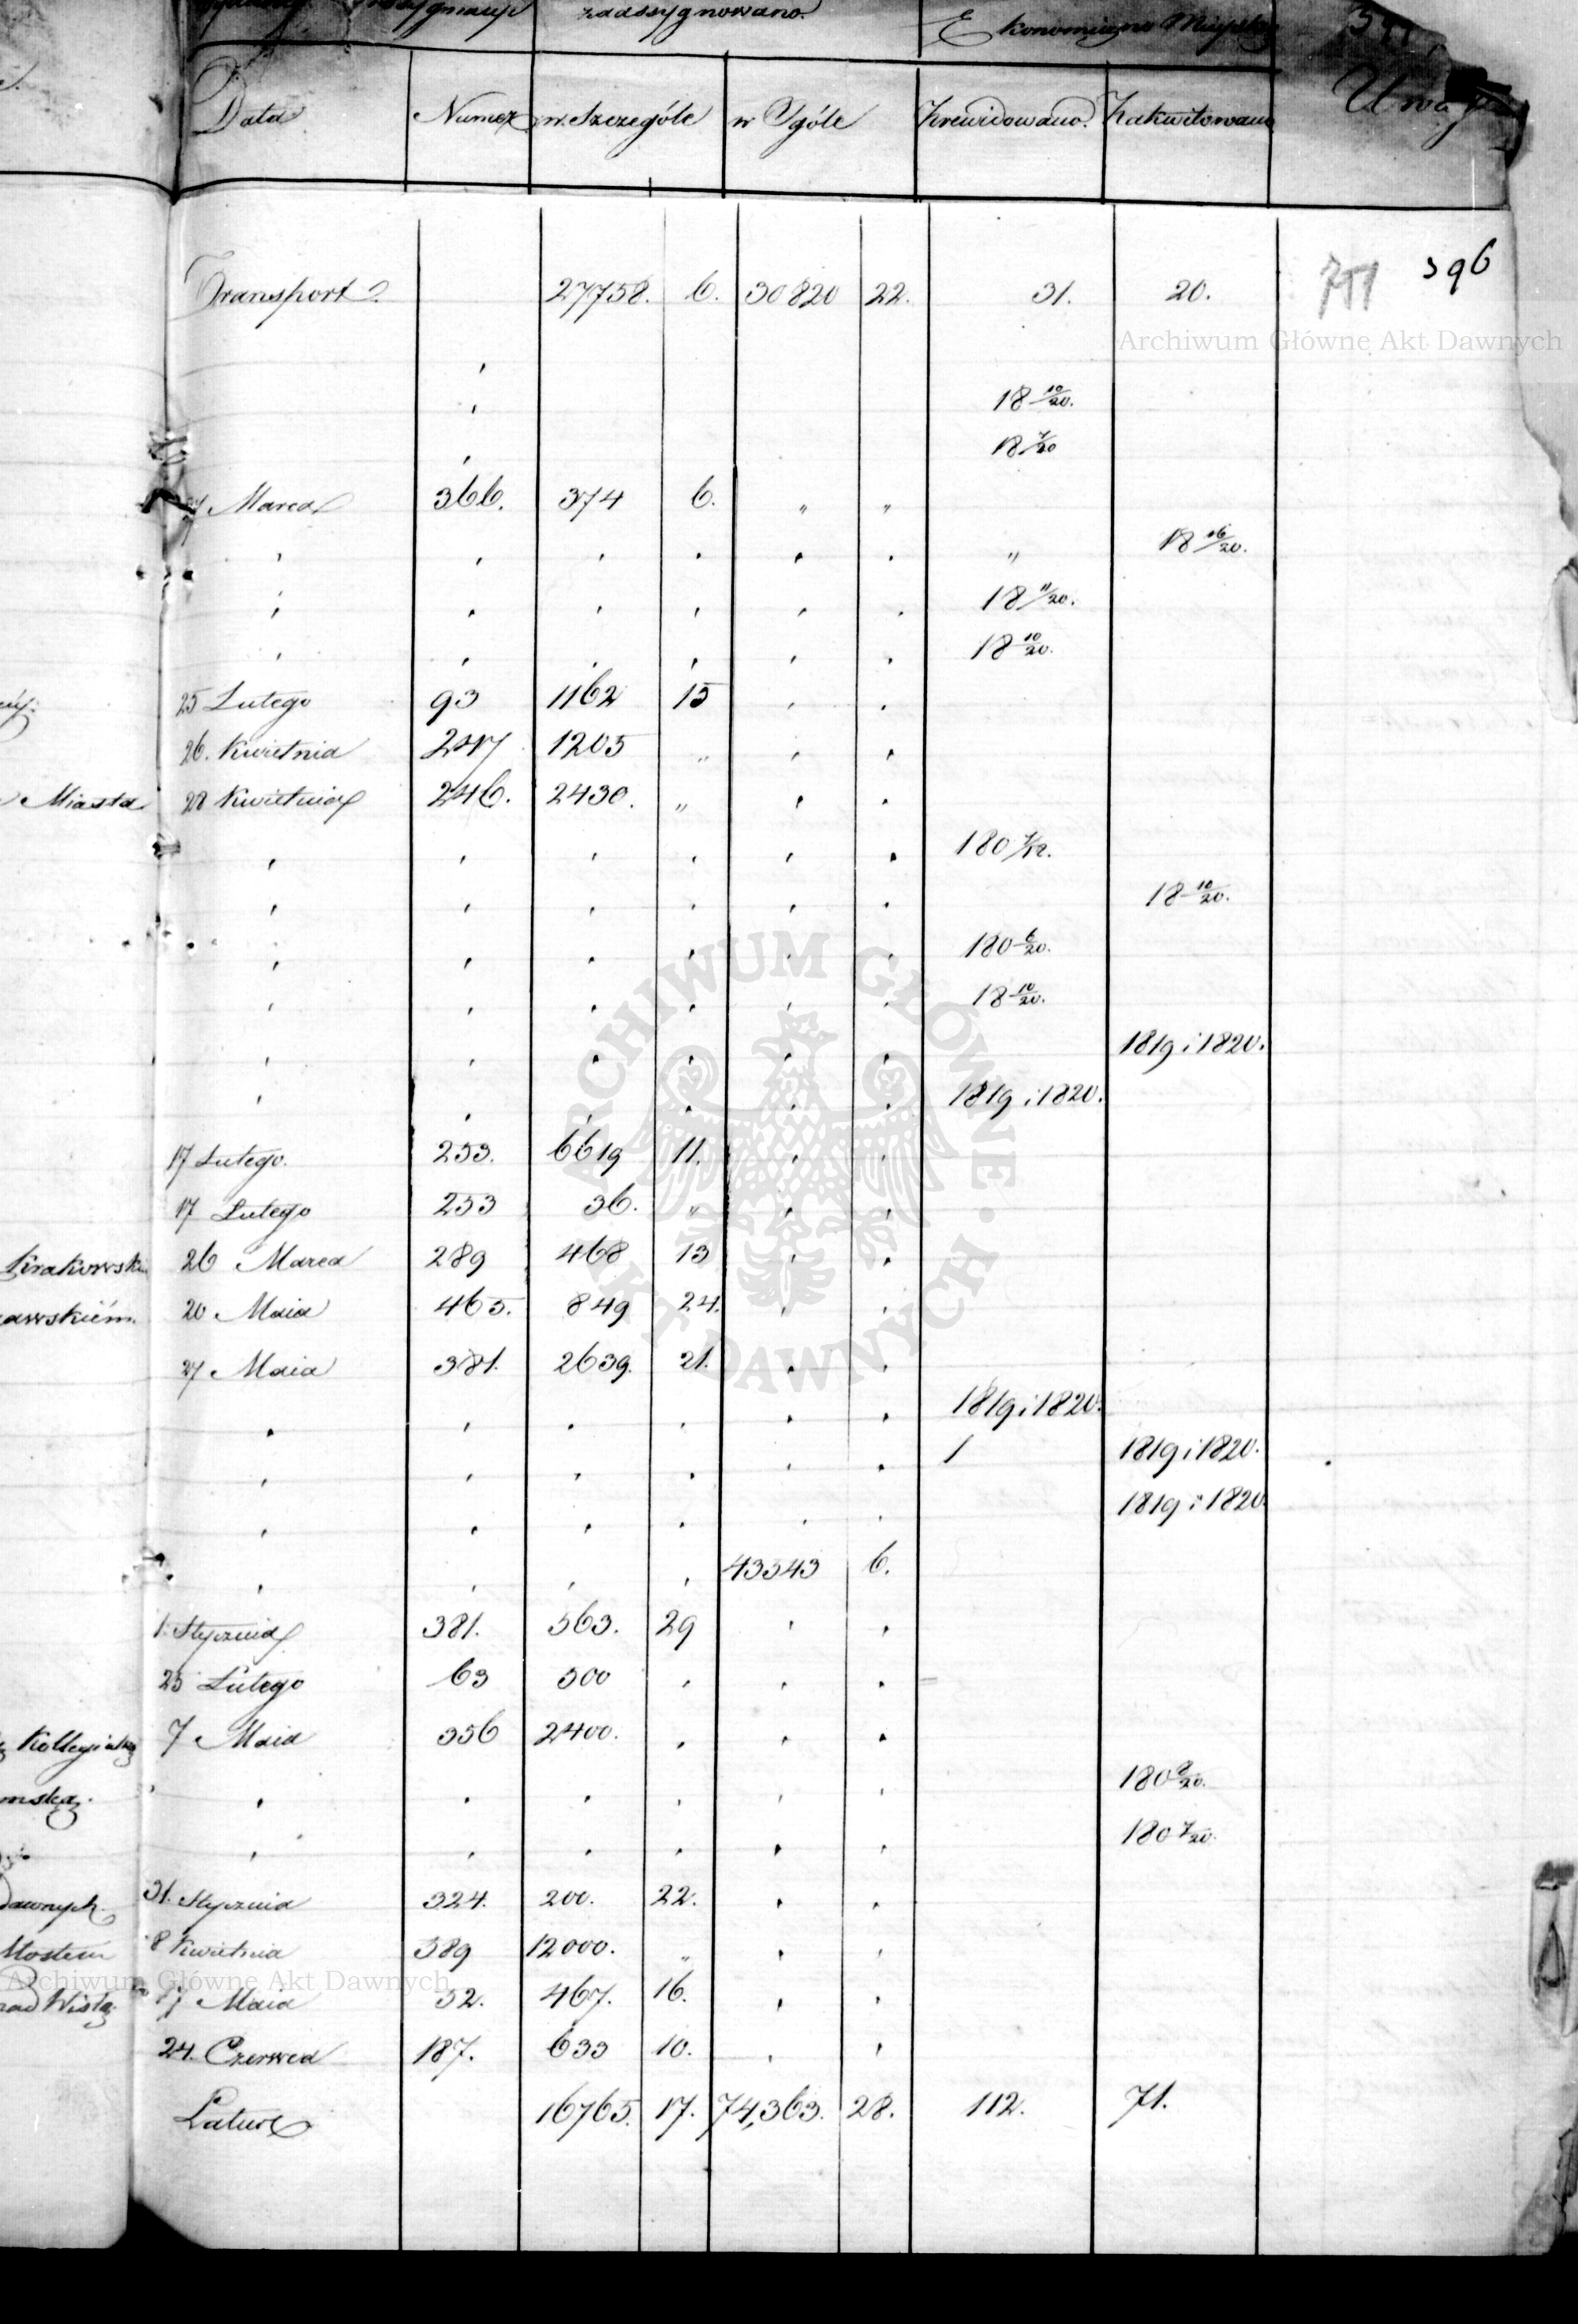 zaassygnowano.
Ekonomiczno Mieyskie
Data Numer w Szczególe w Ogóle Zrewidowano. Zakwitowano Uwagi
396
Transport 27758. 6. 30820 22. 31. 20.
Archiwum Główne Akt Dawnych
18 10/20.
18 7/20
Marca 366. 374 6. " "
" 18 16/20.
18 11/20.
18 10/20.
25 Lutego 93 1162 15
26. Kwietnia 247 1205 "
Miasta 28 Kwietnia 246. 2430. "
180 7/12.
18 10/20.
180 6/20.
18 10/20.
1819 i 1820.
1819 i 1820.
17 Lutego. 253. 6619 11.
17 Lutego 253 36. "
Krakowskim 26 Marca 289 468 13
20 Maia 465. 849 24.
27 Maia 381. 2639. 21.
1819 i 1820.
1 1819 i 1820.
1819 i 1820.
43343 6.
1. Stycznia 381. 563. 29
25 Lutego 63 300
7 Maia 356 2400.
180 8/20.
180 7/20.
Dawnych. 31. Stycznia 324. 200. 22.
Mostem 8 Kwietnia 389 12000. "
Archiwum Główne Akt Dawnych
nad Wisłą 17 Maia 32. 467. 16.
24. Czerwca 187. 633 10.
Latus 16765. 17. 74,363. 28. 112. 71.
ARCHIWUM GŁÓWNE AKT DAWNYCH